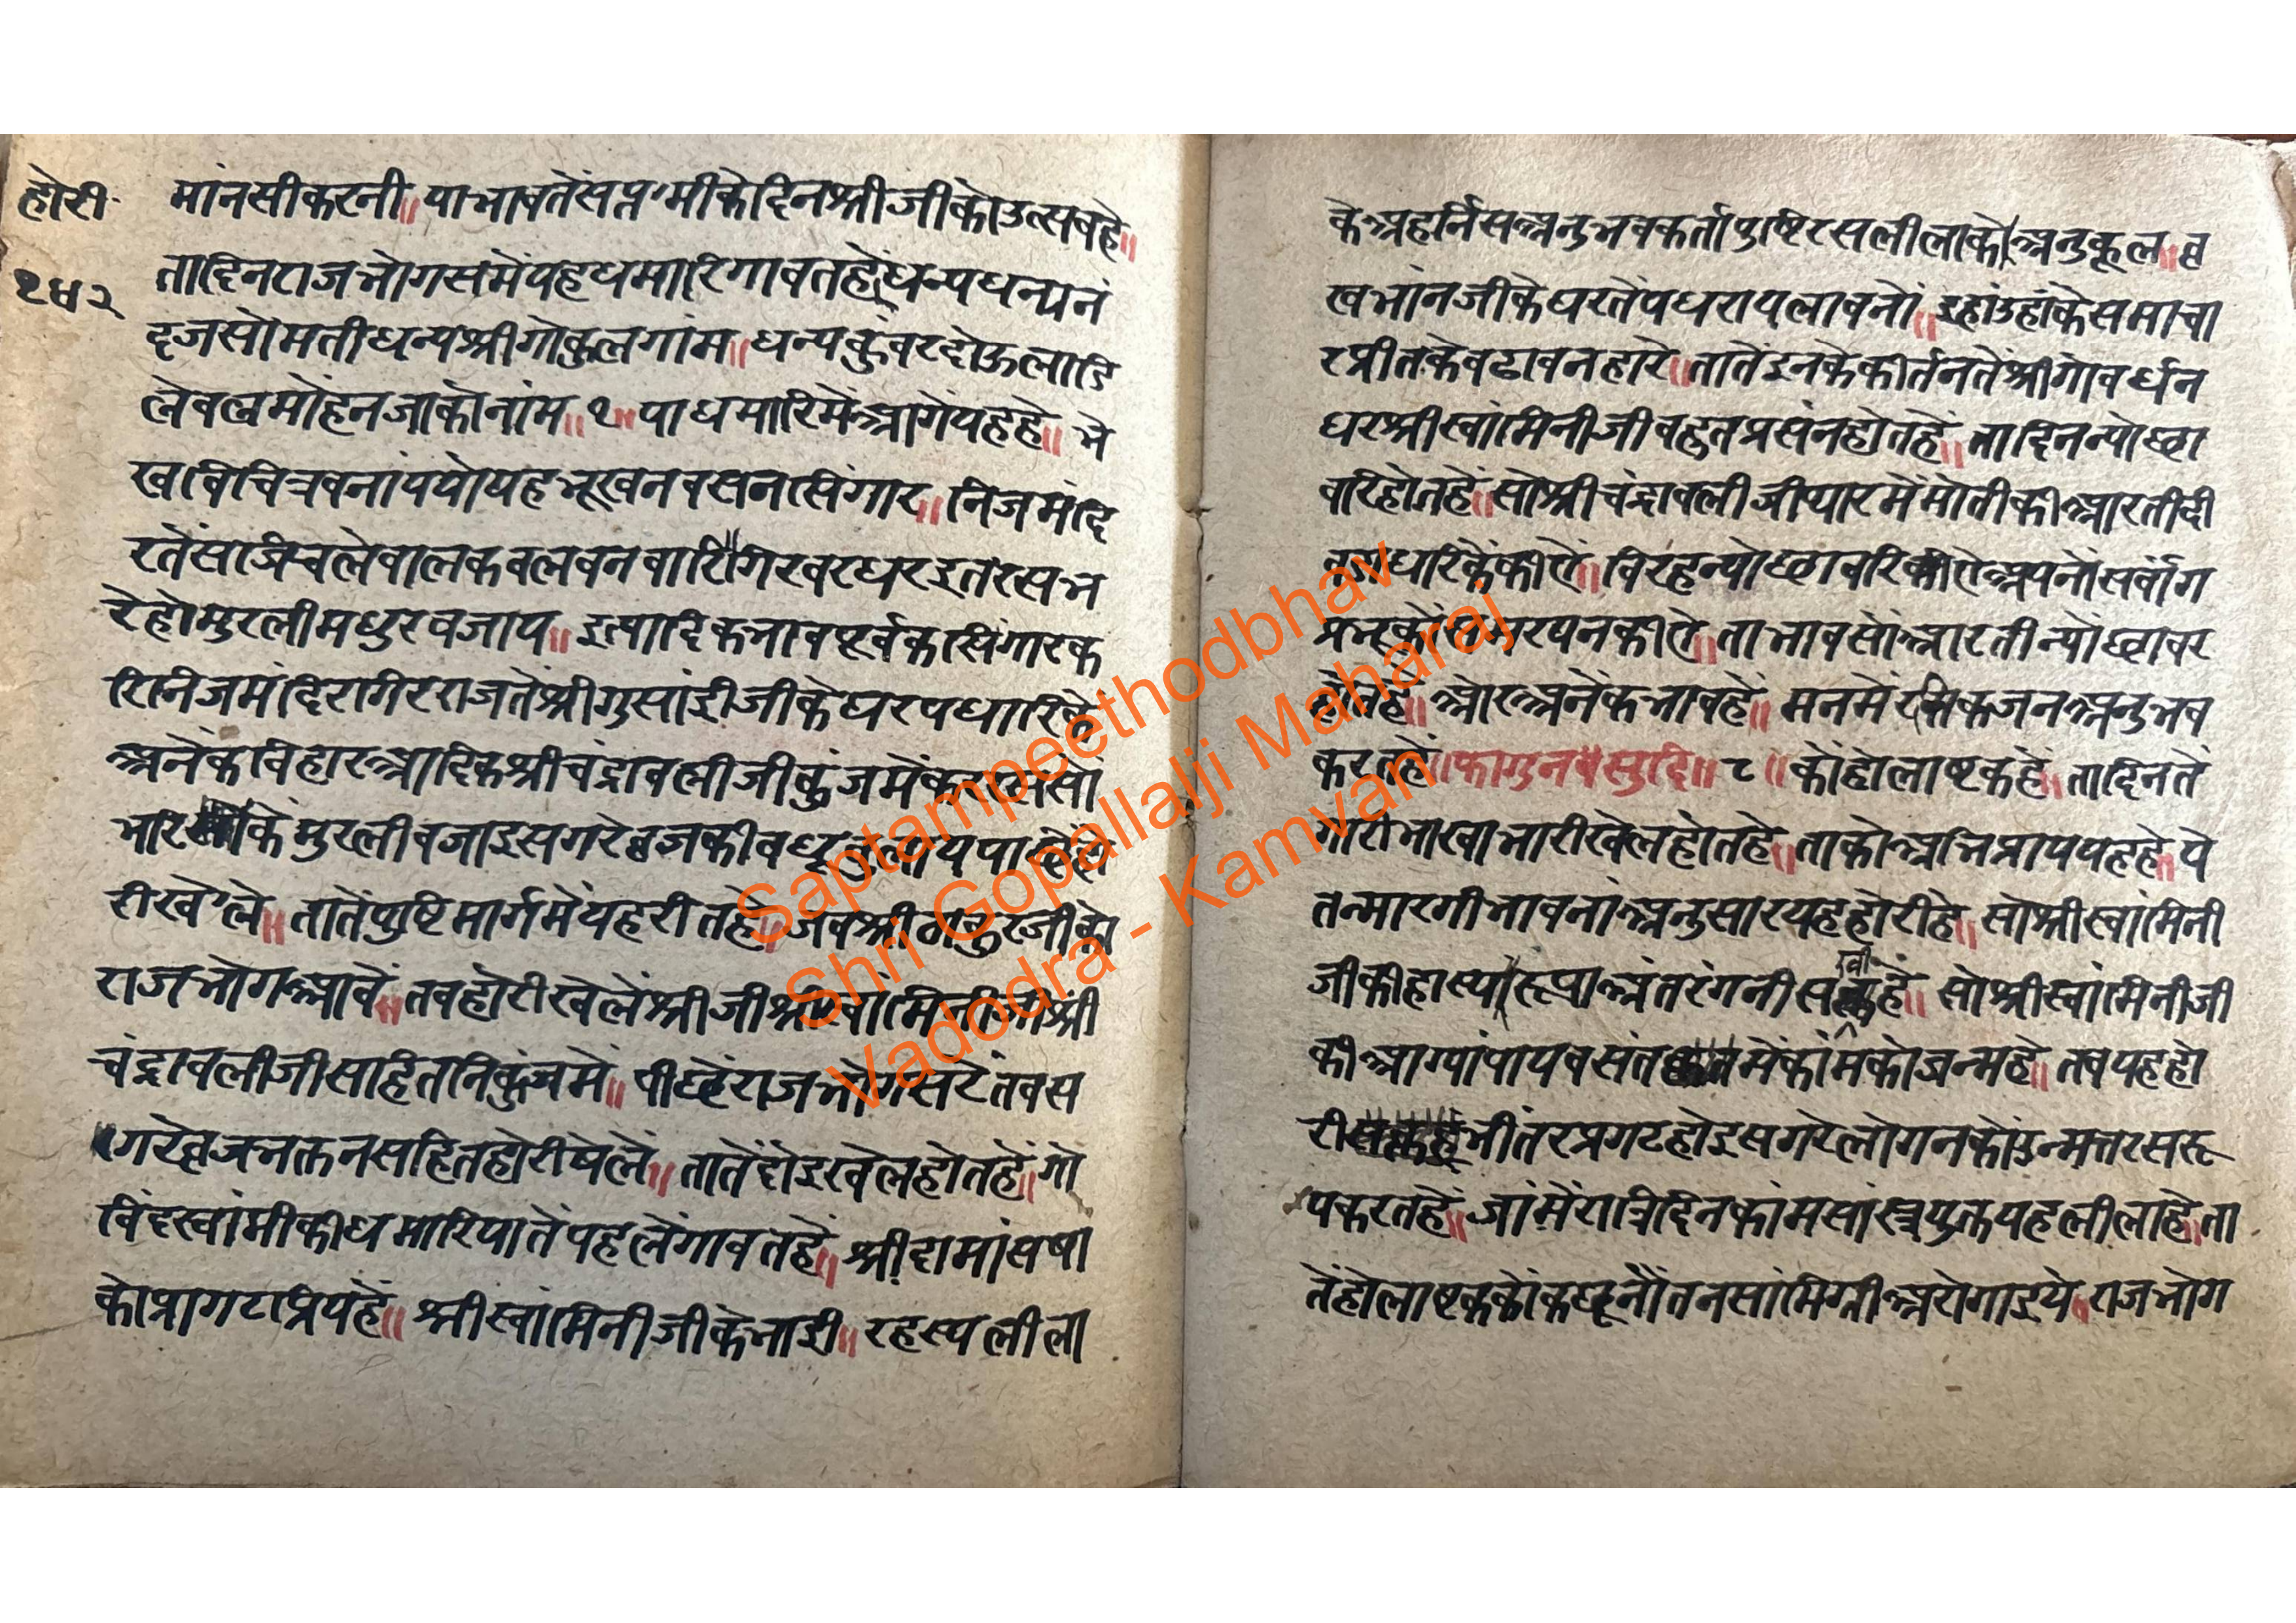 होरी
१४२
मांनसीकरनी॥ याभावतेंसप्तमीकेदिनश्रीजीकोउत्सवहे॥
तादिनराजभोगसमेंयहधमारिगावतहें॥धन्यधन्यनं
दजसोमतीधन्यश्रीगोकुलगांम॥ धन्यकुंवरदोऊलाडि
लेबलमोंहनजाकोनांम॥१॥ याधमारिमेंआगेंयहहे॥ भे
खविचित्रबनांययोयहभूखनबसनसिंगार॥ निजमंदि
रतेंसाजिचलेबालकबलबनवारि॥गिरवरधरइतरसभ
रेहोमुरलीमधुरबजाय॥ इत्यादिकभावपूर्वकसिंगारक
रिनिजमंदिरगिरराजतेंश्रीगुसांईजीकेघरपधारिके
अनेकविहारआदिकश्रीचंद्रावलीजीकुंजमेंकरतरससों
भारिकें मुरलीबजाइसगरेव्रजकीबधूबुलाययाहेंहो
रीखेले॥ तातेंपुष्टिमार्गमेंयहरीतहे॥ जबश्रीठाकुरजीको
राजभोगआवें॥ तबहोरीखेलेंश्रीजीश्रीस्वांमिनीजीश्री
चंद्रावलीजीसहितनिकुंजमें॥ पीछेंराजभोगसरेंतबस
गरेव्रजभक्तनसहितहोरीषेलें॥ तातेंदोइखेलहोतहें॥ गो
विंदस्वांमीकीधमारियातेंपहलेंगावतहें॥ श्रीदामांसषा
कोप्रागटाप्रियहें॥ श्रीस्वांमिनीजीकेभाई॥ रहस्यलीला
केअहर्निसअनुभवकर्तापुष्टिरसलीलाकोअनुकूल॥ व्र
खभांनजीकेघरतेंपधरायलावनों॥ इहांउहांकेसमाचा
रप्रीतकेबढावनहारे॥ तातेंइनकेकीर्तनतेंश्रीगोवर्धन
धरश्रीस्वांमिनीजीबहुतप्रसंनहोतहें॥ तादिनन्योछा
वारिहोतहें॥ सोश्रीचंद्रावलीजीथारमेंमोतीकीआरतीदी
वराधारिकेंकीऐ॥ विरहन्योछावरिकीऐअपनोंसर्वांग
प्रभूकोंसमरपनकीऐ॥ ताभावसोंआरतीन्योंछावर
होतहे॥ ओरअनेंकभावहें॥ मनमेंरसिकजनअनुभव
करतहें॥ फागुनसुदि॥ ८॥ कोहोलाष्टकहें॥ तादिनतें
गारीभाखाभारीखेलहोतहे॥ ताकोअभिप्राययहहे॥ ये
तन्मारगीभावनांअनुसारयहहोरीहे॥ सोश्रीस्वांमिनी
जीकीहास्यरूपाअंतरंगनीसखीहें॥ सोश्रीस्वांमिनीजी
कीआग्यांपायबसंतमेंकांमकोजन्महे॥ तबयहहो
रीभीतरप्रगटहोइसगरेलोगनकोंउन्मत्तरसरू
पकरतहें॥ जांमेंरात्रिदिनकांमसांस्त्रयुक्तयहलीलाहे॥ ता
तेंहोलाष्टककोंकछूनौंतनसांमिग्रीअरोगाइये॥ राजभोग
Saptampeethodbhav
Shri Gopallalji Maharaj
Vadodra - Kamvan